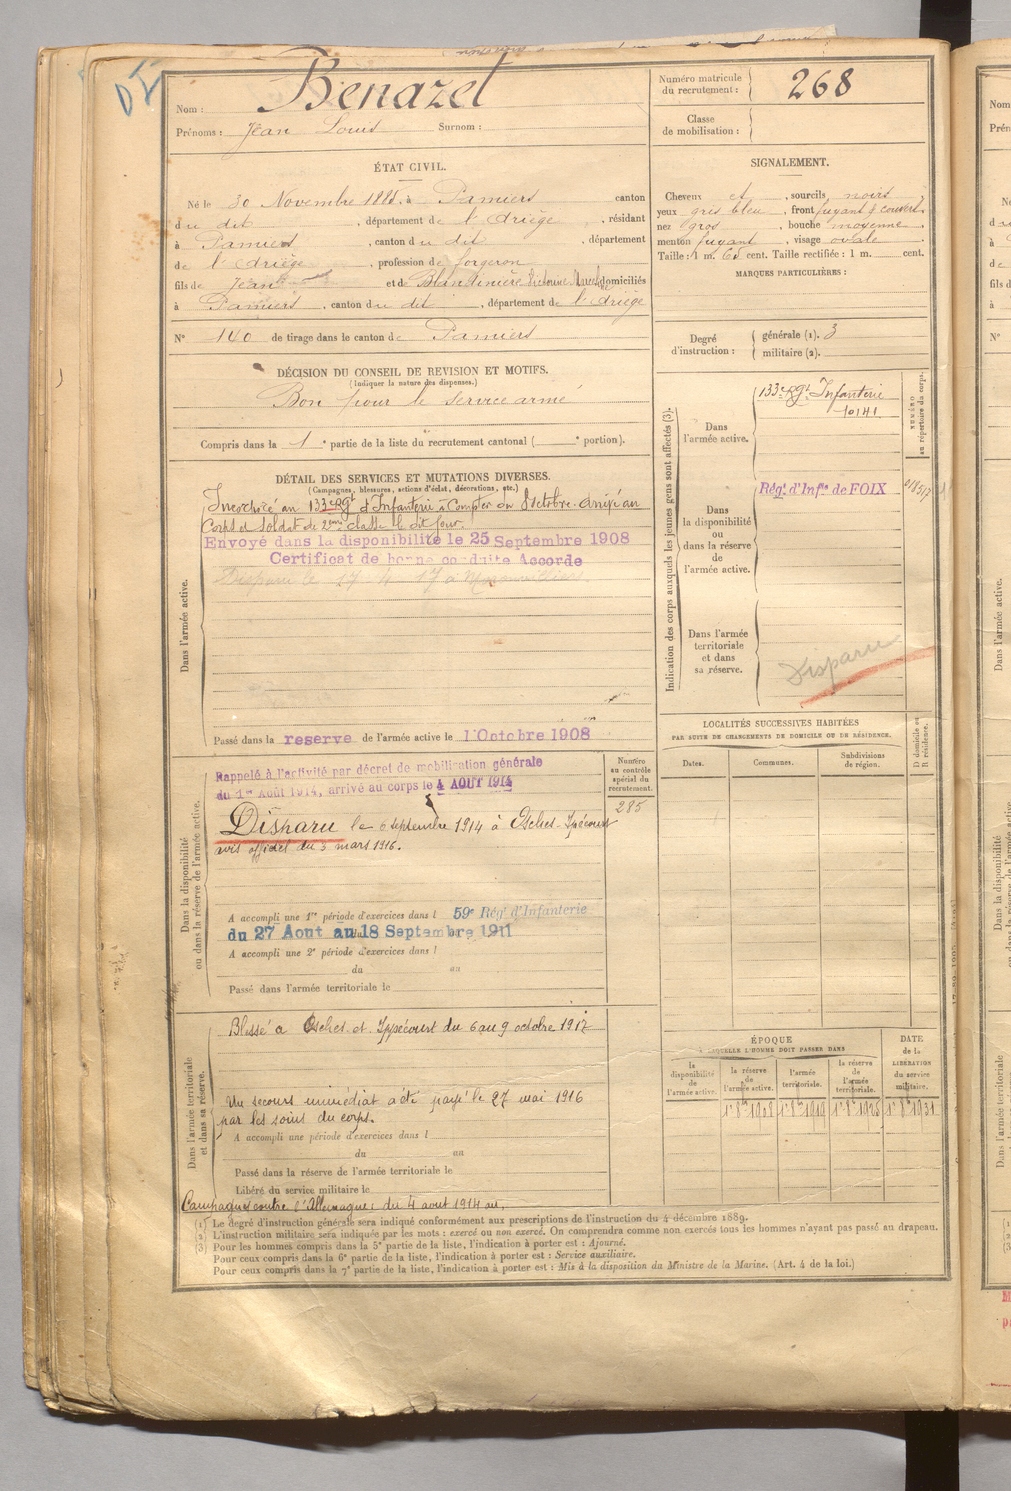 Nom : Benazet
Prénoms : Jean Louis Surnom :
Numéro matricule du recrutement : 268
Classe de mobilisation :
ÉTAT CIVIL.
Né le 30 Novembre 1885, à Pamiers canton
du dit, département de l'Ariège, résidant
à Pamiers, canton du dit, département
de l'Ariège, profession de forgeron
fils de Jean et de Blandinière domiciliés
à Pamiers, canton du dit, département de l'Ariège
N° 140 de tirage dans le canton de Pamiers
SIGNALEMENT.
Cheveux et, sourcils noirs
yeux gris bleu, front fuyant & couvert
nez gros, bouche moyenne
menton fuyant, visage ovale
Taille : 1 m. 65 cent. Taille rectifiée : 1 m. cent.
MARQUES PARTICULIÈRES :
Degré d'instruction : générale (1). 3
militaire (2).
DÉCISION DU CONSEIL DE REVISION ET MOTIFS.
(Indiquer la nature des dispenses.)
Bon pour le service armé
Compris dans la 1e partie de la liste du recrutement cantonal ( e portion).
DÉTAIL DES SERVICES ET MUTATIONS DIVERSES.
(Campagnes, blessures, actions d'éclat, décorations, etc.)
Dans l'armée active.
Incorporé au 133e Rgt d'Infanterie à Compter du 8 octobre. Arrivé au
Corps et soldat de 2ème classe le dit jour.
Envoyé dans la disponibilité le 25 Septembre 1908
Certificat de bonne conduite Accorde
Disparu le 17-4-17 à
Passé dans la reserve de l'armée active le 1 Octobre 1908
Indication des corps auxquels les jeunes gens sont affectés (3).
NUMÉRO au répertoire du corps.
Dans l'armée active.
133e Rgt Infanterie
10141
Dans la disponibilité ou dans la réserve de l'armée active.
Régt d'Infie de FOIX
Dans l'armée territoriale et dans sa réserve.
Disparu
LOCALITÉS SUCCESSIVES HABITÉES
PAR SUITE DE CHANGEMENTS DE DOMICILE OU DE RÉSIDENCE.
Dates. Communes. Subdivisions de région. D domicile ou R résidence.
Dans la disponibilité ou dans la réserve de l'armée active.
Numéro au contrôle spécial du recrutement.
285
Rappelé à l'activité par décret de mobilisation générale
du 1er Août 1914, arrivé au corps le 4 AOUT 1914
Disparu le 6 septembre 1914 à Osches-Ippécourt
avis officiel du 3 mars 1916.
A accompli une 1re période d'exercices dans l 59e Régt d'Infanterie
du 27 Aout au 18 Septembre 1911
A accompli une 2e période d'exercices dans l
du au
Passé dans l'armée territoriale le
Dans l'armée territoriale et dans sa réserve.
Blessé à Osches et Ippécourt du 6 au 9 octobre 1917
Un secours immédiat a été payé le 27 mai 1916
par les soins du corps.
A accompli une période d'exercices dans l
du au
Passé dans la réserve de l'armée territoriale le
Libéré du service militaire le
Campagne contre l'Allemagne : du 4 aout 1914 au,
ÉPOQUE
À LAQUELLE L'HOMME DOIT PASSER DANS
la disponibilité de l'armée active.
la réserve de l'armée active.
l'armée territoriale.
la réserve de l'armée territoriale.
DATE de la LIBÉRATION du service militaire.
1er 8bre 1908 1er 8bre 1919 1er 8bre 1925 1er 8bre 1931
(1) Le degré d'instruction générale sera indiqué conformément aux prescriptions de l'instruction du 4 décembre 1889.
(2) L'instruction militaire sera indiquée par les mots : exercé ou non exercé. On comprendra comme non exercés tous les hommes n'ayant pas passé au drapeau.
(3) Pour les hommes compris dans la 5e partie de la liste, l'indication à porter est : Ajourné.
Pour ceux compris dans la 6e partie de la liste, l'indication à porter est : Service auxiliaire.
Pour ceux compris dans la 7e partie de la liste, l'indication à porter est : Mis à la disposition du Ministre de la Marine. (Art. 4 de la loi.)